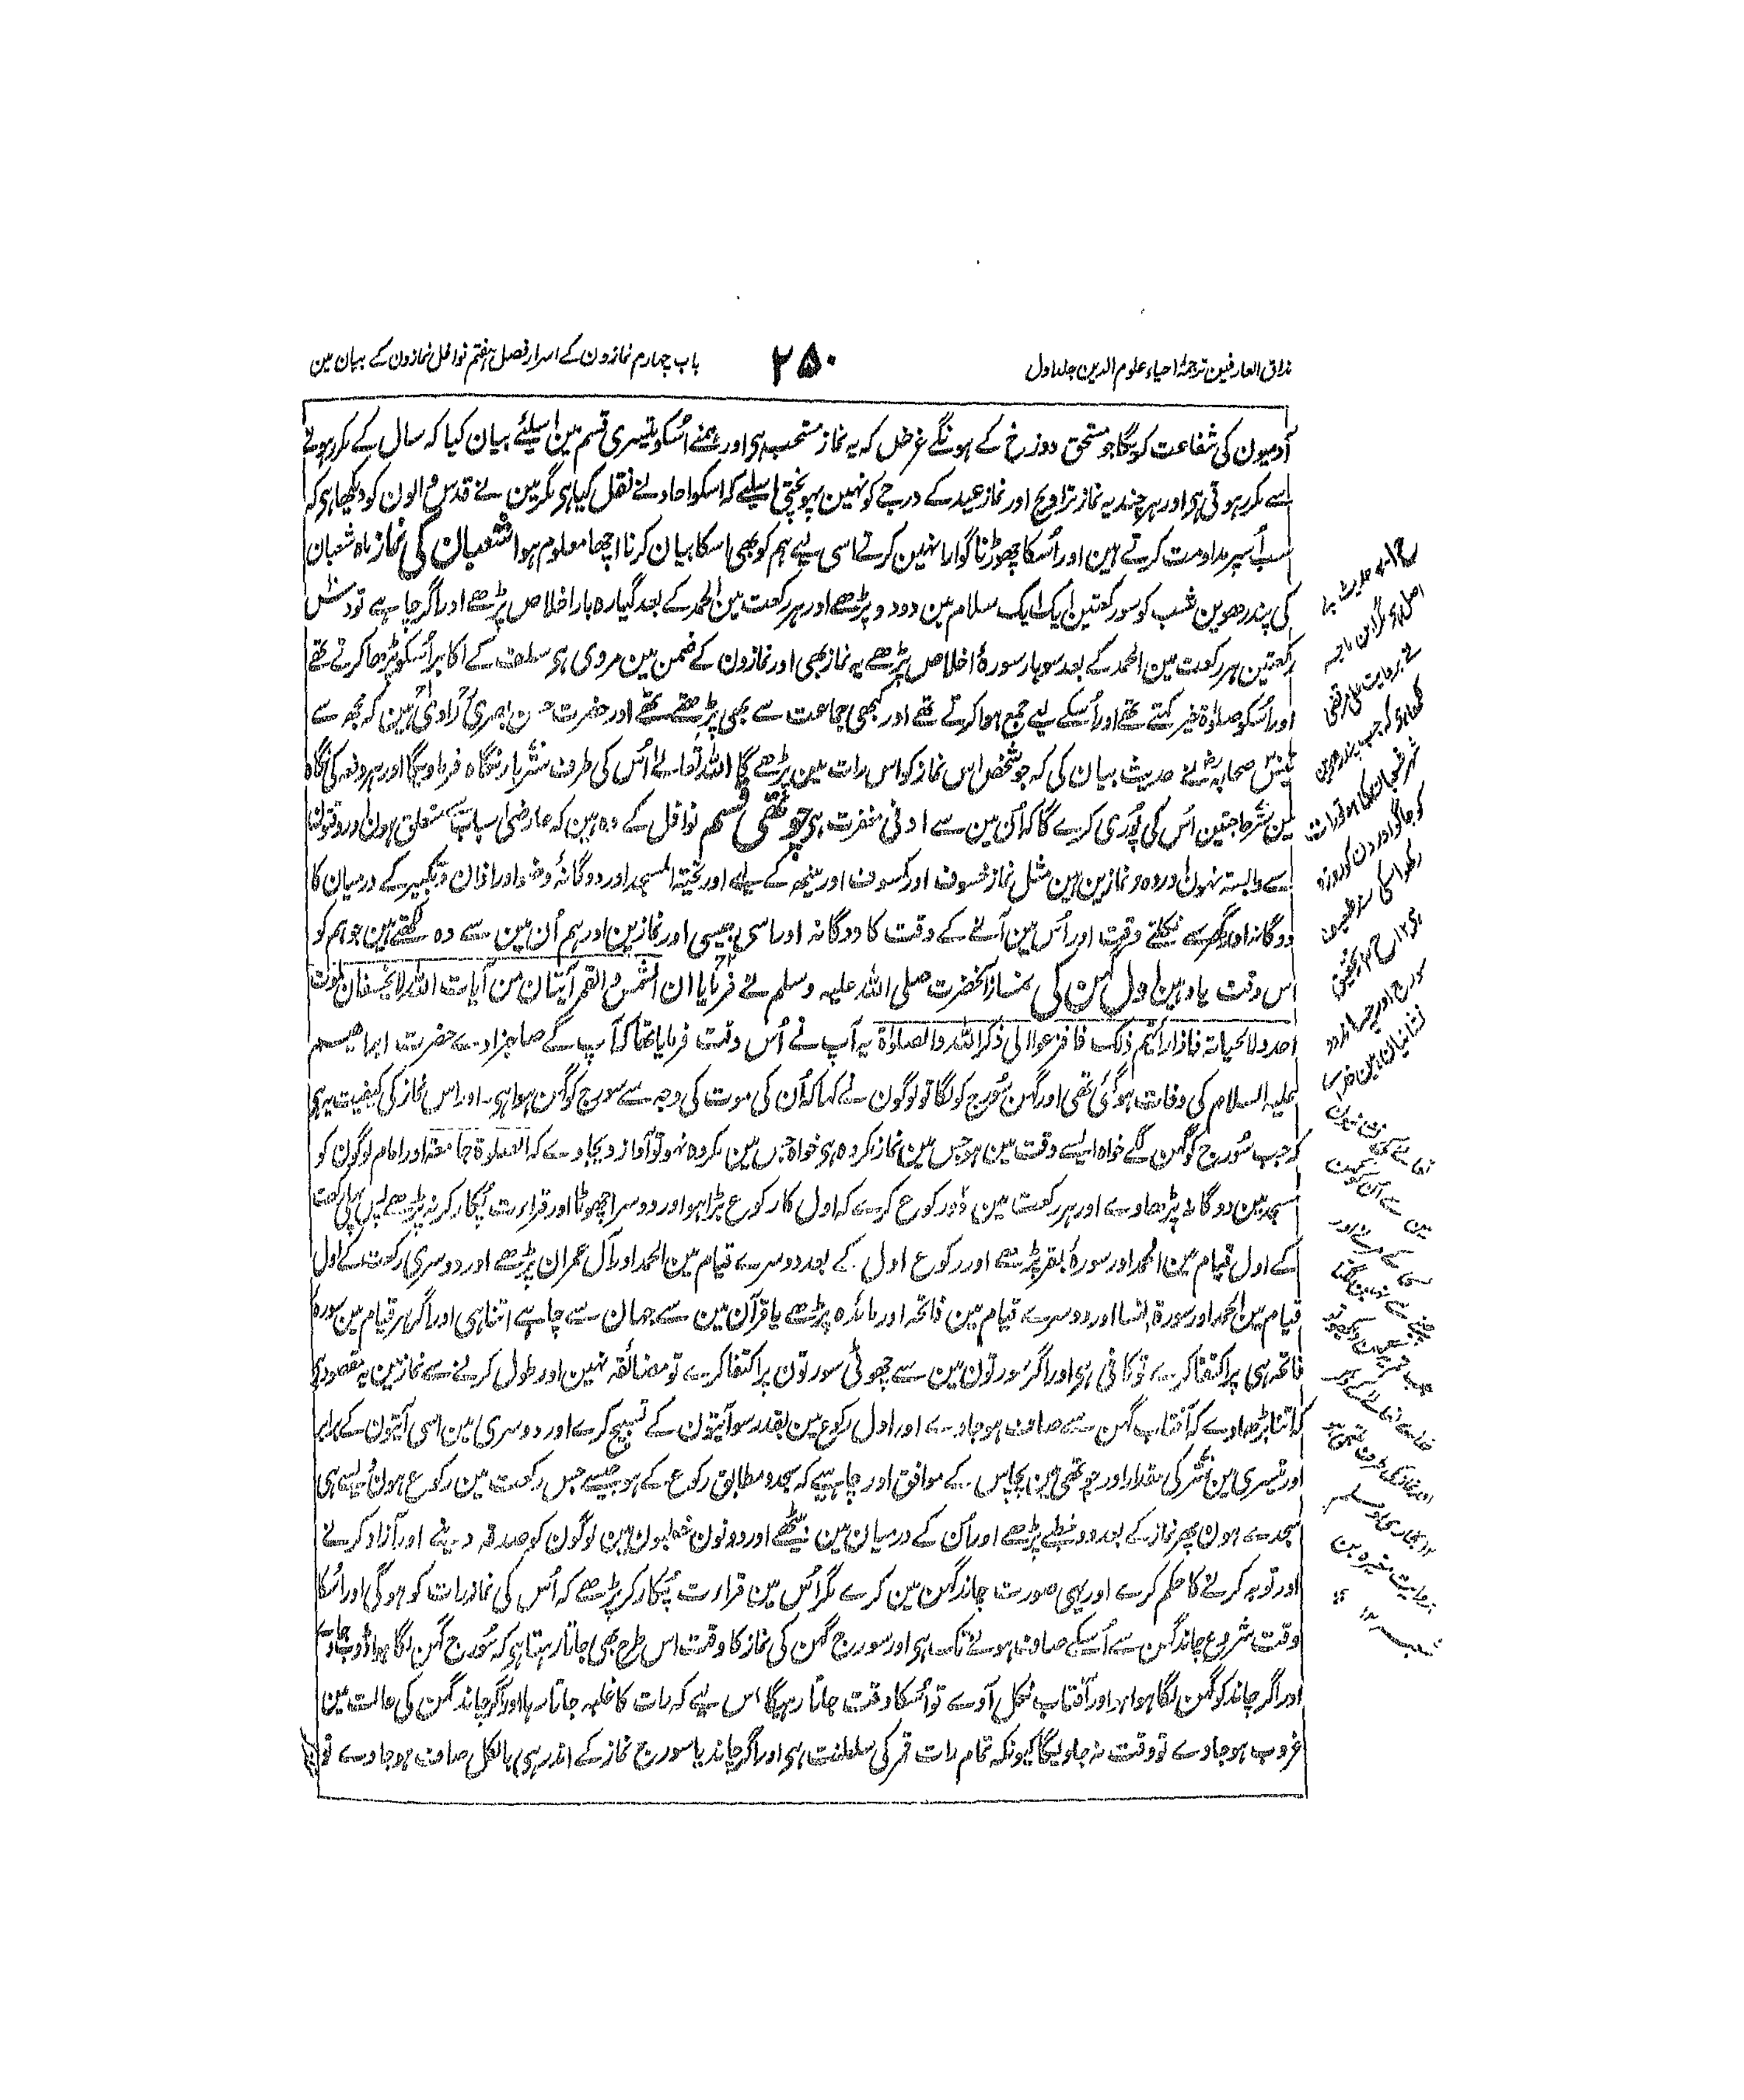 مذاق العارفین ترجمۂ احیاء علوم الدین جلد اول
۲۵۰
باب چہارم نمازون کے اسرار فصل ہفتم نوافل نمازون کے بیان مین
آدمیون کی شفاعت کریگا جو مستحق دوزخ کے ہونگے غرضکہ یہ نماز مستحب ہی اور ہمنے اُسکو تیسری قسم مین اسلیئے بیان کیا کہ سال کے مکرر ہونے
سے مکرر ہوتی ہی اور ہر چند یہ نماز تراویح اور نماز عید کے درجے کو نہین پہونچتی اسلیے کہ اسکو احاد نے نقل کیا ہی مگر مین نے قدس والون کو دیکھا ہی کہ
سب اُسپر مداومت کرتے ہین اور اُسکا چھوڑنا گوارا نہین کرتے اسی لیے ہم کو بھی اسکا بیان کرنا اچھا معلوم ہوا شعبان کی نماز ماہ شعبان
کی پندرھوین شب کو سو رکعتین ایک ایک سلام مین دو دو پڑھے اور ہر رکعت مین الحمد کے بعد گیارہ بار اخلاص پڑھے اور اگر چاہے تو دس
رکعتین ہر رکعت مین الحمد کے بعد سو بار سورۂ اخلاص پڑھے یہ نماز بھی اور نمازون کے ضمن مین مروی ہی سلف کے اکابر اُسکو پڑھا کرتے تھے
اور اُسکو صلوٰۃ خیر کہتے تھے اور اُسکے لیے جمع ہوا کرتے تھے اور کبھی جماعت سے بھی پڑھتے تھے اور حضرت حسن بصری راوی ہین کہ مجھ سے
تیس صحابہ نے حدیث بیان کی کہ جو شخص اس نماز کو اس رات مین پڑھے گا اللہ تعالےٰ اُس کی طرف ستر بار نگاہ فرماویگا اور ہر دفعہ کی نگاہ
مین ستر حاجتین اُس کی پُوری کرے گا کہ اُن مین سے ادنی مغفرت ہی چوتھی قسم نوافل کے وہ ہین کہ عارضی اسباب سے متعلق ہون اور وقتون
سے وابستہ نہون اور وہ نو نمازین ہین مثل نماز خسوف اور کسوف اور مینھ کے لیے اور تحیۃ المسجد اور دوگانۂ وضو اور اذان و تکبیر کے درمیان کا
دوگانہ اور گھر سے نکلتے وقت اور اُس مین آنے کے وقت کا دوگانہ اور اسی جیسی اور نمازین اور ہم اُن مین سے وہ لکھتے ہین جو ہم کو
اس وقت یاد ہین اول گہن کی نماز آنحضرت صلی اللہ علیہ وسلم نے فرمایا ان الشمس والقمر آیتان من آیات اللہ لا یخسفان لموت
احد ولا لحیاتہ فاذا رأیتم ذلک فافزعوا الی ذکر اللہ والصلوٰۃ یہ آپ نے اُس وقت فرمایا تھا کہ آپ کے صاحبزادے حضرت ابراھیم
علیہ السلام کی وفات ہو گئی تھی اور گہن سُورج کو لگا تو لوگون نے کہا کہ اُن کی موت کی وجہ سے سورج کو گہن ہوا ہی۔ اور اس نماز کی کیفیت یہ ہی
کہ جب سُورج کو گہن لگے خواہ ایسے وقت مین ہو جس مین نماز مکروہ ہی خواہ جس مین مکروہ نہو تو آواز دیجاوے کہ الصلوۃ جامعۃ اور امام لوگون کو
مسجد مین دوگانہ پڑھاوے اور ہر رکعت مین دو رکوع کرے کہ اول کا رکوع بڑا ہو اور دوسرا چھوٹا اور قرارت پُکار کر نہ پڑھے پس پہلی رکعت
کے اول قیام مین الحمد اور سورۂ بقر پڑھے اور رکوع اول کے بعد دوسرے قیام مین الحمد اور آل عمران پڑھے اور دوسری رکعت کے اول
قیام مین الحمد اور سورۃ النسا اور دوسرے قیام مین فاتحہ اور مائدہ پڑھے یا قرآن مین سے جہان سے چاہے اتنا ہی اور اگر ہر قیام مین سورہ
فاتحہ ہی پر اکتفا کرے تو کافی ہی اور اگر سُورتون مین سے چھوٹی سورتون پر اکتفا کرے تو مضائقہ نہین اور طول کرنے سے نماز مین یہ مقصود ہی
کہ اتنا پڑھاوے کہ آفتاب گہن سے صاف ہو جاوے اور اول رکوع مین بقدر سو آیتون کے تسبیح کرے اور دوسری مین اسی آیتون کے برابر
اور تیسری مین ستر کی مقدار اور چوتھی مین پچاس کے موافق اور چاہیے کہ سجدہ مطابق رکوع کے ہو جیسے جس رکعت مین رکوع ہون ویسے ہی
سجدے ہون پھر نماز کے بعد دو خطبے پڑھے اور اُن کے درمیان مین بیٹھے اور دونون خطبون مین لوگون کو صدقہ دینے اور آزاد کرنے
اور توبہ کرنے کا حکم کرے اور یہی صورت چاند گہن مین کرے مگر اُس مین قرارت پُکار کر پڑھے کہ اُس کی نماز رات کو ہوگی اور اُسکا
وقت شروع چاند گہن سے اُسکے صاف ہونے تک ہی اور سورج گہن کی نماز کا وقت اس طرح بھی جاتا رہتا ہی کہ سُورج گہن لگا ہوا ڈوب جاوے
اور اگر چاند کو گہن لگا ہوا ہو اور آفتاب نکل آوے تو اُسکا وقت جاتا رہیگا اس لیے کہ رات کا غلبہ جاتا رہا اور اگر چاند گہن کی حالت مین
غروب ہو جاوے تو وقت نہ جاویگا کیونکہ تمام رات قمر کی سلطنت ہی اور اگر چاند یا سورج نماز کے اندر ہی بالکل صاف ہو جاوے تو
ح ۱ حدیث بے
اصل ہی مگر ابن ماجہ
نے بروایت علی مرتضی
لکھا ہی کہ جب پندرھوین
شعبان کی ہو تو رات
کو جاگو اور دن کو روزہ
رکھو اسکی سند ضعیف
ہی ۱۲ ح ۲ تحقیق
سورج اور چاند دو
نشانیان ہین خدا